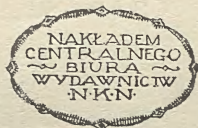 NAKŁADEM
CENTRALNEGO
~ BIURA ~
WYDAWNICTW
·N·K·N·